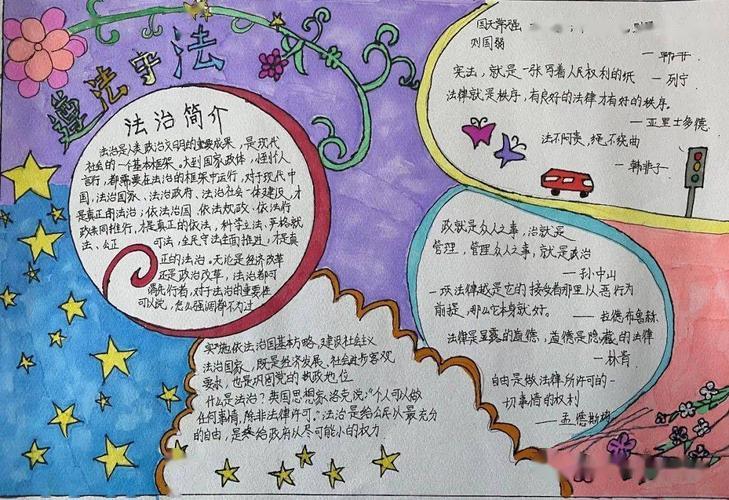 遵法守法
法治简介
法治是人类政治文明的重要成果，是现代
社会的一个基本框架。大到国家政体，
言行，都需要在法治的框架中运行，对于现代中
国，法治国家、法治政府、法治社会一体建设，才
是真正的法治；依法治国、依法执政、依法行
政共同推行，才是真正的依法，科学立法、严格执
法、公正司法，全民守法全面推进，才是真
正的法治。无论是经济改革
还是政治改革，法治都可
先行者，对于法治的重要性
可以说，怎么强调都不为过
实施依法治国基本方略，建设社会主义
法治国家，既是经济发展、社会进步客观
要求，也是巩固党的执政地位
什么是法治？英国思想家洛克说："个人可以做
任何事情，除非法律许可。"法治是给公民以最充分
的自由，是给政府以尽可能小的权力
国无常强
—韩非
宪法，就是一张写着人民权利的纸
—列宁
法律就是秩序，有良好的法律才有好的秩序。
—亚里士多德
法不阿贵，绳不挠曲
—韩非子
政就是众人之事，治就是
管理，管理众人之事，就是政治
—孙中山
法律是显露的道德，道德是隐藏的法律
—林肯
自由是做法律所许可的一
切事情的权利
—孟德斯鸠